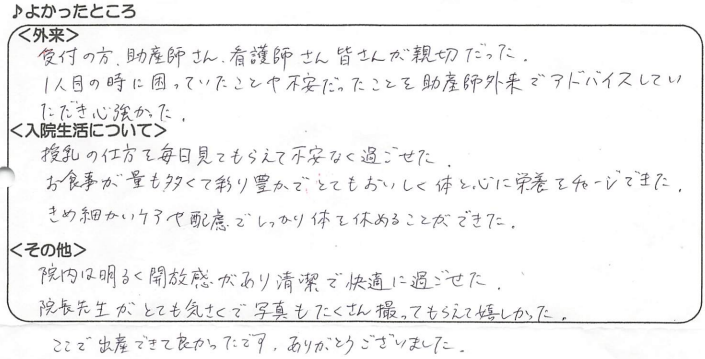 ♪よかったところ
＜外来＞
受付の方、助産師さん、看護師さん皆さんが親切だった。
1人目の時に困っていたことや不安だったことを助産師外来でアドバイスしてい
ただき心強かった。
＜入院生活について＞
授乳の仕方を毎日見てもらえて不安なく過ごせた。
お食事が量も多くて彩り豊かでとてもおいしく体と心に栄養をチャージできた。
きめ細かいケアや配慮でしっかり体を休めることができた。
＜その他＞
院内は明るく開放感があり清潔で快適に過ごせた。
院長先生がとても気さくで写真もたくさん撮ってもらえて嬉しかった。
ここで出産できて良かったです。ありがとうございました。